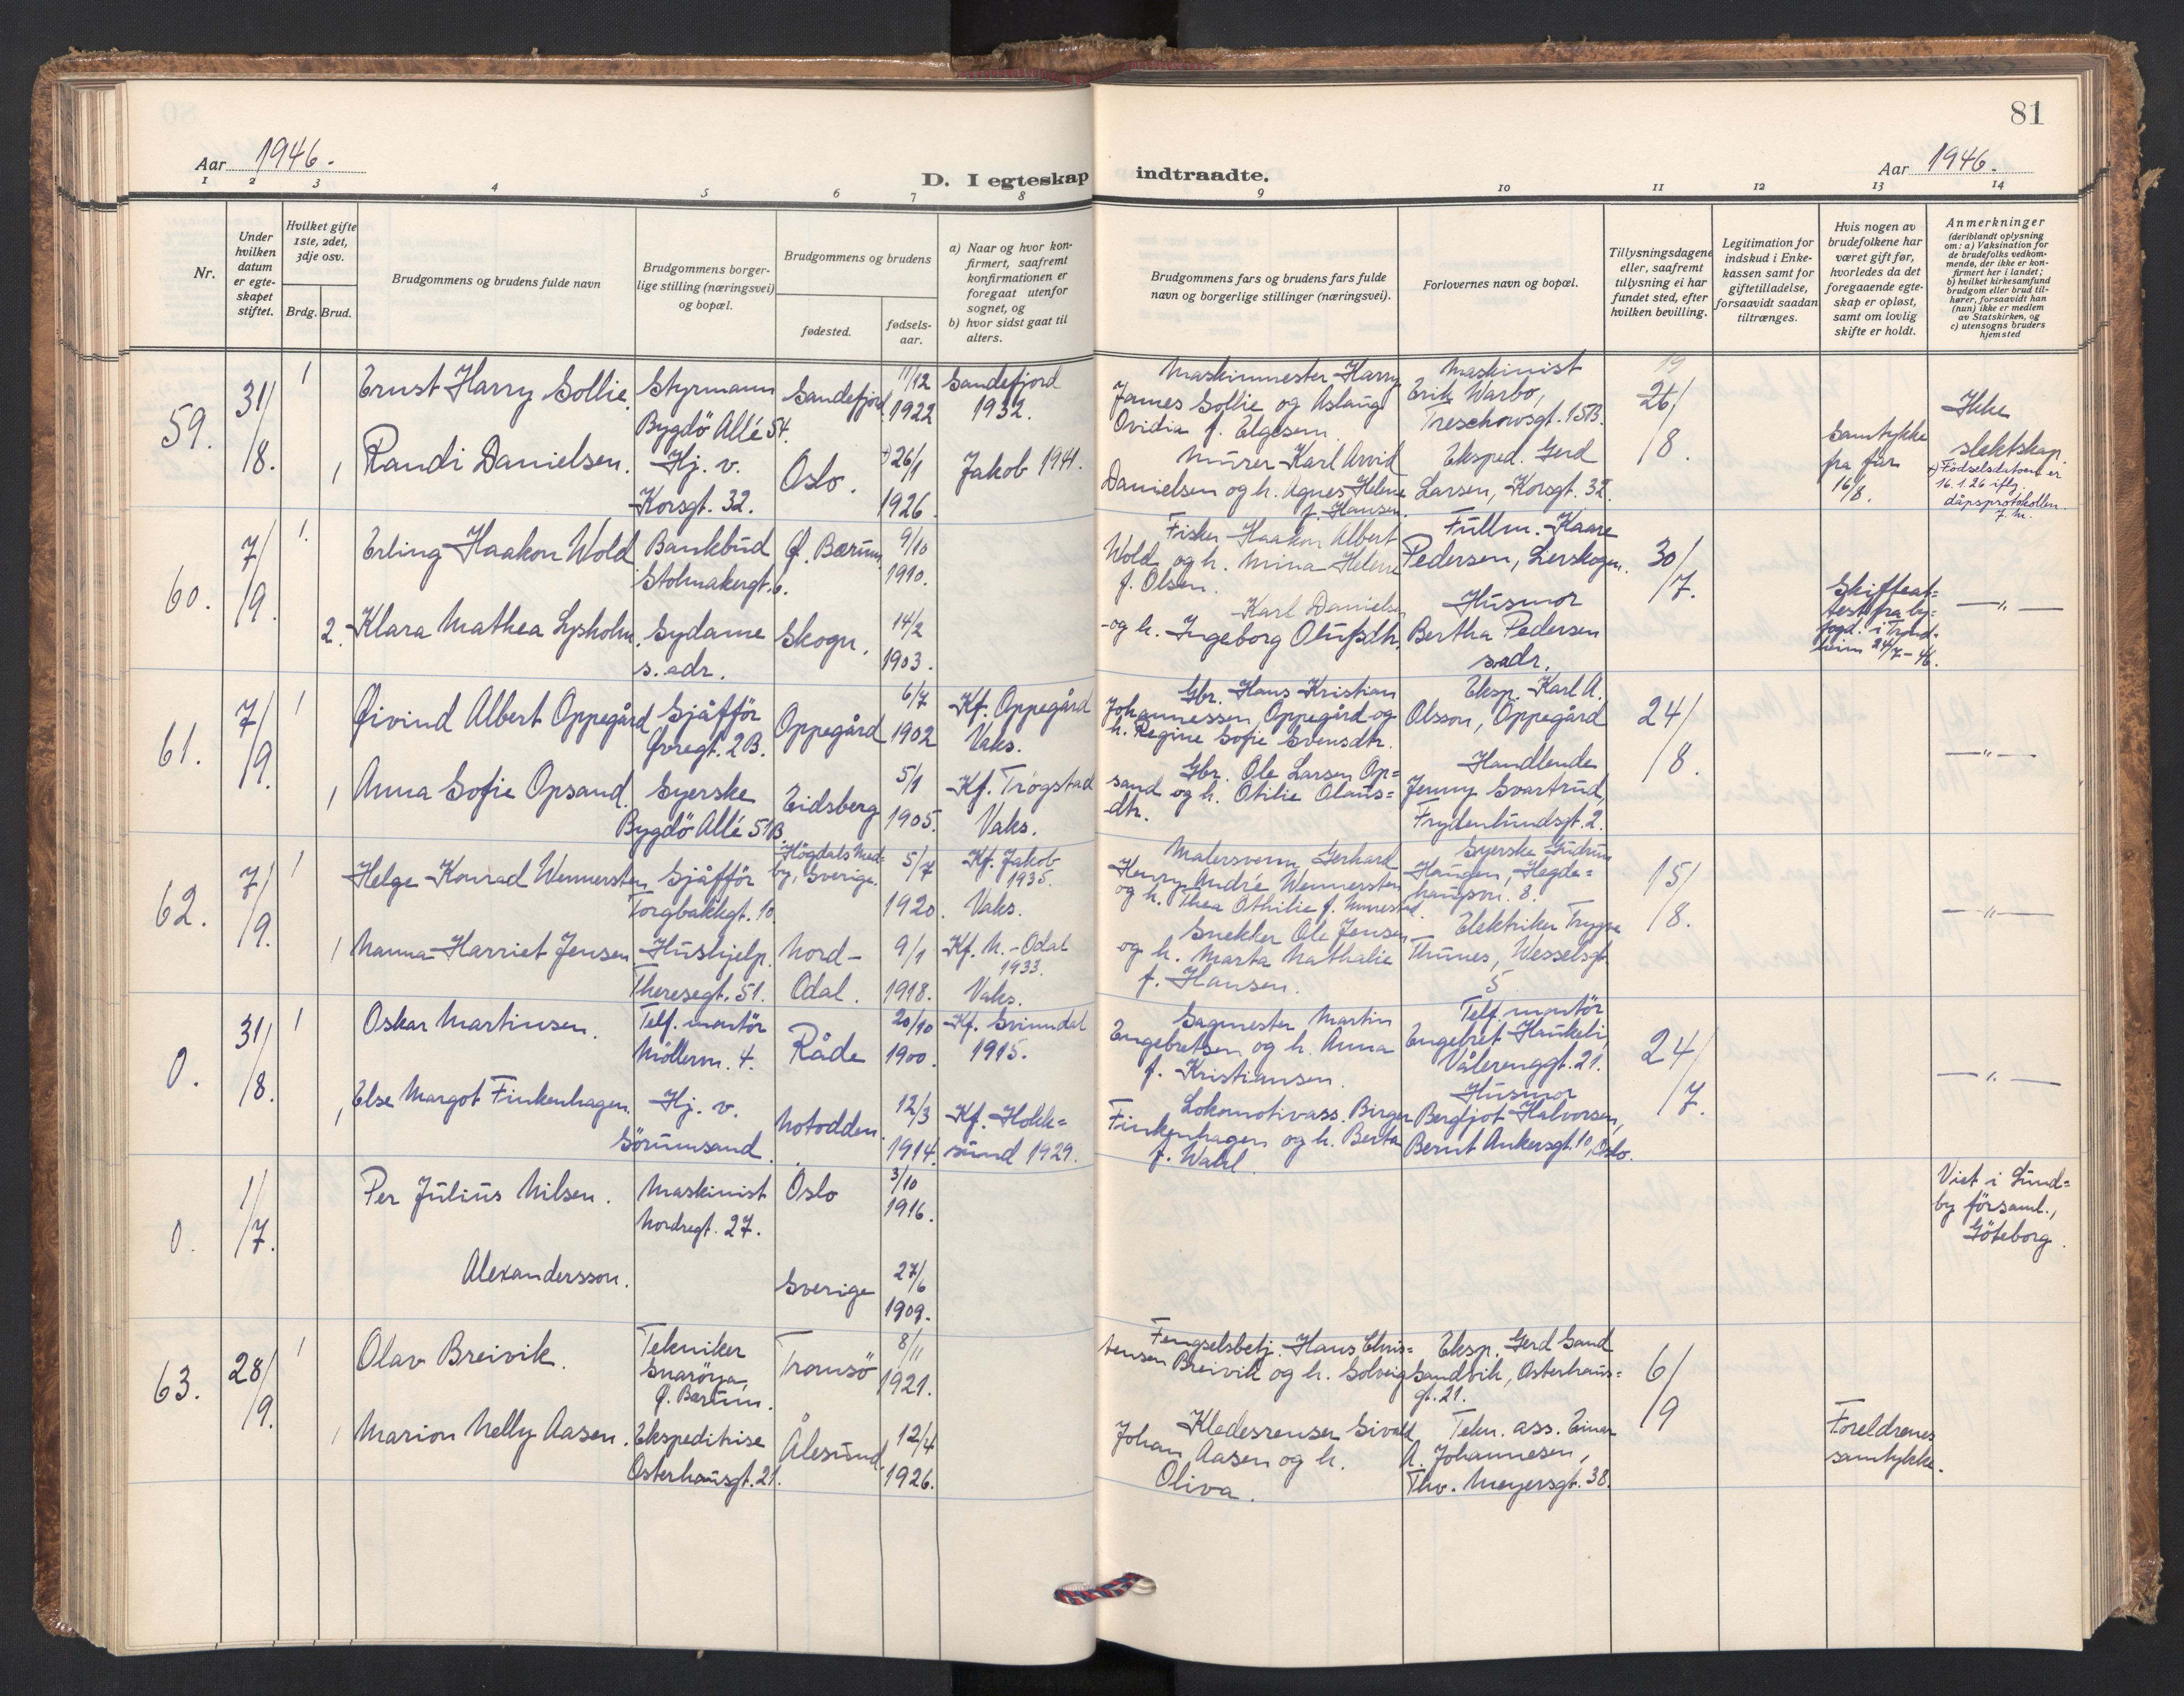 81
Aar 1946.
D. I egteskap indtraadte.
Aar 1946.
1 2 3 4 5 6 7 8 9 10 11 12 13 14
Nr.
Under hvilken datum er egteskapet stiftet.
Hvilket gifte 1ste, 2det, 3dje osv.
Brdg. Brud.
Brudgommens og brudens fulde navn
Brudgommens borgerlige stilling (næringsvei) og bopæl.
Brudgommens og brudens
fødested.
fødselsaar.
a) Naar og hvor konfirmert, saafremt konfirmationen er foregaat utenfor sognet, og
b) hvor sidst gaat til alters.
Brudgommens fars og brudens fars fulde navn og borgerlige stillinger (næringsvei).
Forlovernes navn og bopæl.
Tillysningsdagene eller, saafremt tillysning ei har fundet sted, efter hvilken bevilling.
Legitimation for indskud i Enkekassen samt for giftetilladelse, forsaavidt saadan tiltrænges.
Hvis nogen av brudefolkene har været gift før, hvorledes da det foregaaende egteskap er opløst, samt om lovlig skifte er holdt.
Anmerkninger
(deriblandt oplysning om: a) Vaksination for de brudefolks vedkommende, der ikke er konfirmert her i landet; b) hvilket kirkesamfund brudgom eller brud tilhører, forsaavidt han (hun) ikke er medlem av Statskirken, og c) utensogns bruders hjemsted
59.
31/8.
1
Ernst Harry Sollie.
Styrmann
Bygdö Allé 54.
Sandefjord
11/12
1922
Sandefjord
1932.
Maskinmester Harry
James Sollie og Aslaug
Ovidia f. Elgesem.
Maskinist
Erik Warbo,
Treschowsgt. 15B.
19
26/8.
1
Randi Danielsen.
Hj. v.
Korsgt. 32.
Oslo.
+) 26/1
1926.
Jakob 1941.
Murer Karl Arvid
Danielsen og h. Agnes Helene
f. Hansen.
Eksped. Gerd
Larsen, Korsgt. 32.
Samtykke
fra far
16/8.
Ikke
slektskap.
+) Födselsdatoen er
16.1.26 iflg.
dåpsprotokollen.
60.
7/9.
1.
Erling Haakon Wold
Bankbud
Stolmakergt. 6.
Ö. Bærum
9/10
1910.
Fisker Haakon Albert
Wold og h. Mina Helene
f. Olsen.
Fullm. Kaare
Pedersen, Lerskogen.
30/7.
2.
Klara Mathea Lysholm.
Sydame
s. adr.
Skogn.
14/2
1903.
Karl Danielsen
og h. Ingeborg Olufsdtr.
Husmor
Bertha Pedersen
s adr.
Skifteat=
test fra by=
fogd. i Trond=
heim 24/7-46.
— „ —
61.
7/9.
1
Öivind Albert Oppegård
Sjåfför
Övregt. 2B.
Oppegård
6/7
1902
Kf. Oppegård
Vaks.
Gbr. Hans Kristian
Johannessen Oppegård og
h. Regine Sofie Svensdtr.
Eksp. Karl A.
Olsson, Oppegård
24/8.
— „ —
1
Anna Sofie Opsand.
Syerske
Bygdö Allé 51B.
Eidsberg
5/1
1905.
Kf. Trögstad
Vaks.
Gbr. Ole Larsen Op=
sand og h. Otilie Olaus=
dtr.
Handlende
Jenny Svartrud,
Frydenlundsgt. 2.
62.
7/9.
1
Helge Konrad Wennersten
Sjåfför
Torgbakkgt. 10.
Högdals Med=
by, Sverige.
5/7
1920.
Kf. Jakob
1935.
Vaks.
Malersvenn Gerhard
Henry André Wennersten
og h. Thea Othilie f.
Syerske Gudrun
Haugen, Hegde=
haugsvn. 8.
15/8.
— „ —
1
Nanna Harriet Jensen.
Hushjelp.
Theresegt. 51.
Nord-
Odal.
9/1
1918.
Kf. N.-Odal
1933.
Vaks.
Snekker Ole Jensen
og h. Marta Nathalie
f. Hansen.
Elektriker Trygve
Thunes, Wesselsgt.
5
0.
31/8.
1
Oskar Martinsen.
Telf. montör
Möllervn. 4.
Råde
20/10
1900.
Kf.
1915.
Sagmester Martin
Engebretsen og h. Anna
f. Kristiansen.
Telf. montör
Engebret Haukeli,
Vålerenggt. 21.
24/7.
— „ —
1
Else Margot Finkenhagen.
Hj. v.
Sörumsand.
Notodden.
12/3
1914.
Kf. Hokk=
sund 1929.
Lokomotivass. Birger
Finkenhagen og h. Berta
f. Wahl.
Husmor
Bergljot Halvorsen,
Bernt Ankersgt. 10, Oslo.
0.
1/7.
Per Julius Nilsen.
Maskinist
Nordregt. 27.
Oslo
3/10
1916.
Viet i Lund=
by församl.,
Göteborg.
Alexandersson.
Sverige
27/6
1909.
63.
28/9.
1
Olav Breivik.
Tekniker
Snaröya,
Ö. Bærum.
Tromsö
8/11
1921.
Fengselsbetj. Hans Chris=
tensen Breivik og h. Solveig
Eksp. Gerd Sand
Sandvik, Osterhaus=
gt. 21.
6/9
1
Marion Nelly Aasen.
Ekspeditrise
Osterhausgt. 21.
Ålesund.
12/4
1926.
Klædesrenser Sivald
Johan Aasen og h.
Oliva.
Tekn. ass. Einar
A. Johannesen,
Thv. Meyersgt. 38.
Foreldrenes
samtykke.